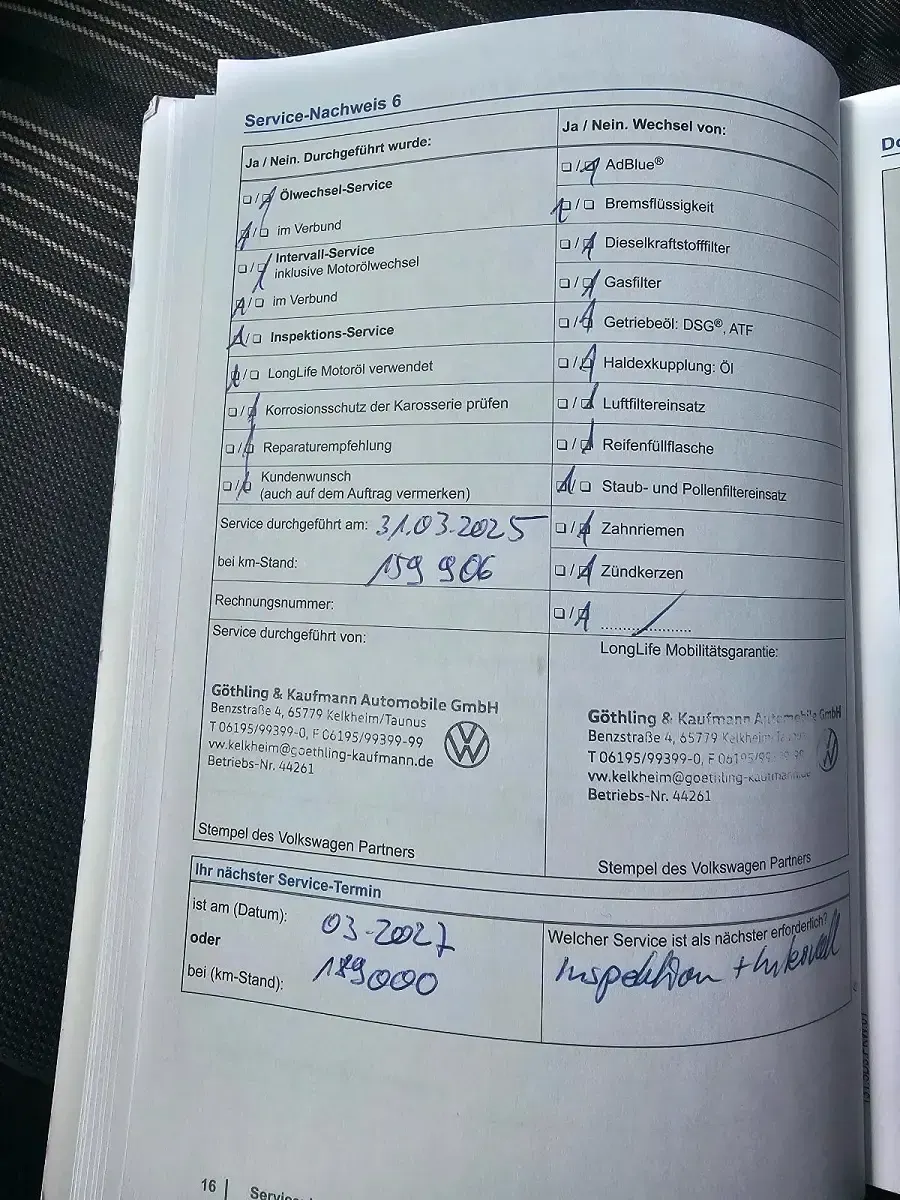 Service-Nachweis 6
Ja / Nein. Durchgeführt wurde:
Ölwechsel-Service
im Verbund
Intervall-Service
inklusive Motorölwechsel
im Verbund
Inspektions-Service
LongLife Motoröl verwendet
Korrosionsschutz der Karosserie prüfen
Reparaturempfehlung
Kundenwunsch
(auch auf dem Auftrag vermerken)
Service durchgeführt am: 31.03.2025
bei km-Stand: 159 906
Rechnungsnummer:
Service durchgeführt von:
Göthling & Kaufmann Automobile GmbH
Benzstraße 4, 65779 Kelkheim/Taunus
T 06195/99399-0, F 06195/99399-99
vw.kelkheim@goethling-kaufmann.de
Betriebs-Nr. 44261
Stempel des Volkswagen Partners
Ja / Nein. Wechsel von:
AdBlue®
Bremsflüssigkeit
Dieselkraftstofffilter
Gasfilter
Getriebeöl: DSG®, ATF
Haldexkupplung: Öl
Luftfiltereinsatz
Reifenfüllflasche
Staub- und Pollenfiltereinsatz
Zahnriemen
Zündkerzen
LongLife Mobilitätsgarantie:
Göthling & Kaufmann Automobile GmbH
Benzstraße 4, 65779 Kelkheim/Taunus
T 06195/99399-0, F 06195/99399-99
vw.kelkheim@goethling-kaufmann.de
Betriebs-Nr. 44261
Stempel des Volkswagen Partners
Ihr nächster Service-Termin
ist am (Datum): 03-2027
oder
bei (km-Stand): 189000
Welcher Service ist als nächster erforderlich?
Inspektion + Intervall
16